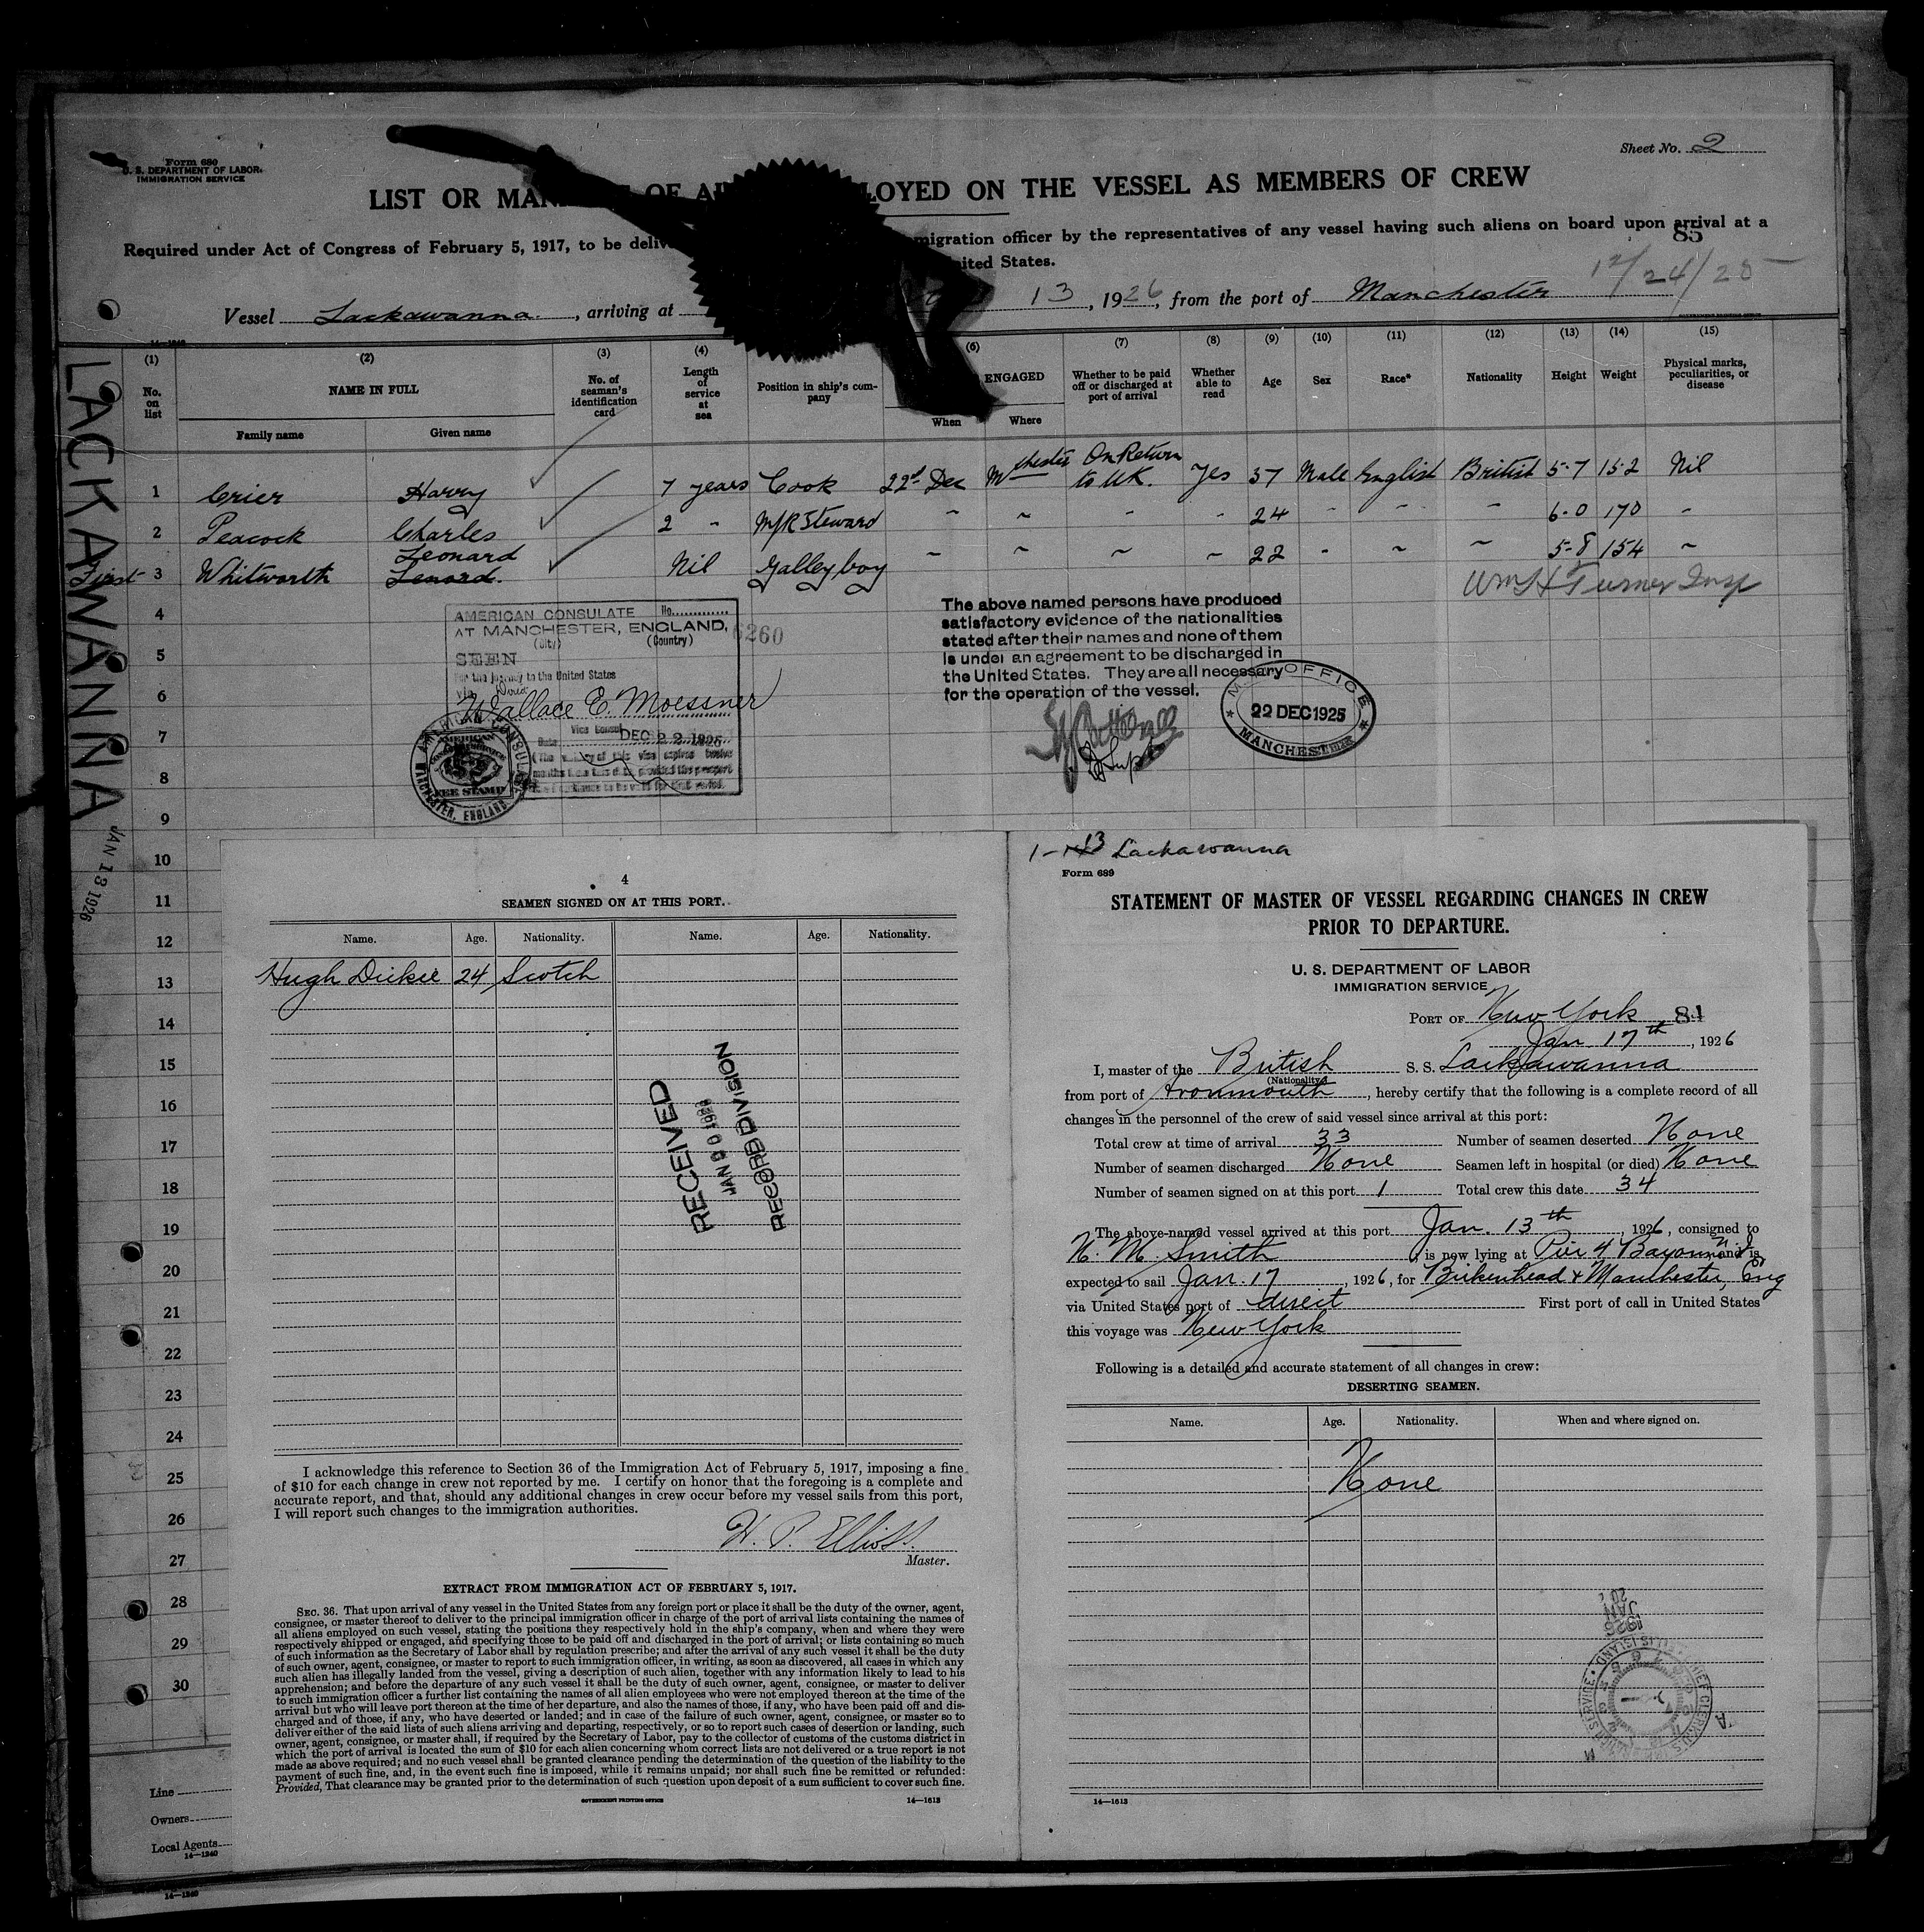 Form 680
U. S. DEPARTMENT OF LABOR
IMMIGRATION SERVICE
Sheet No. 2
LIST OR MAN OF AL LOYED ON THE VESSEL AS MEMBERS OF CREW
Required under Act of Congress of February 5, 1917, to be delive migration officer by the representatives of any vessel having such aliens on board upon arrival at a
85
ited States.
12/24/25
Vessel Lackawanna, arriving at 13, 1926, from the port of Manchester
GOVERNMENT PRINTING OFFICE
14—1240
LACKAWANNA
JAN 13 1926
(1) (2) (3) (4) (6) (7) (8) (9) (10) (11) (12) (13) (14) (15)
No. on list NAME IN FULL No. of seaman's identification card Length of service at sea Position in ship's company ENGAGED Whether to be paid off or discharged at port of arrival Whether able to read Age Sex Race* Nationality Height Weight Physical marks, peculiarities, or disease
Family name Given name When Where
1 Crier Harry 7 years Cook 22d Dec Mchester On Return to UK. Yes 37 Male English British 5-7 152 Nil
2 Peacock Charles 2 " M/R Steward " ~ " " 24 " " " 6-0 170 "
First 3 Whitworth Leonard Lenard. Nil Galley boy " ~ ~ ~ 22 " ~ ~ 5-8 154 ~
Wm H Turner Insp
4
5
6
7
8
9
10
11
12
13
14
15
16
17
18
19
20
21
22
23
24
25
26
27
28
29
30
AMERICAN CONSULATE No.
AT MANCHESTER, ENGLAND, 6260
(City) (Country)
SEEN
For the journey to the United States
via Direct
Wallace E. Moessner
Vice Consul
Date DEC 22 1925
(The validity of this visa expires twelve
months from this date, provided the passport
continues to be valid for that period.
AMERICAN CONSULATE
MANCHESTER, ENGLAND
FEE STAMP
The above named persons have produced
satisfactory evidence of the nationalities
stated after their names and none of them
is under an agreement to be discharged in
the United States. They are all necessary
for the operation of the vessel.
D Supt
M. M. OFFICE
22 DEC 1925
MANCHESTER
4
SEAMEN SIGNED ON AT THIS PORT.
Name. Age. Nationality. Name. Age. Nationality.
Hugh Dickie 24 Scotch
RECEIVED
JAN 20 1926
RECORD DIVISION
I acknowledge this reference to Section 36 of the Immigration Act of February 5, 1917, imposing a fine
of $10 for each change in crew not reported by me. I certify on honor that the foregoing is a complete and
accurate report, and that, should any additional changes in crew occur before my vessel sails from this port,
I will report such changes to the immigration authorities.
H. P. Elliott.
Master.
EXTRACT FROM IMMIGRATION ACT OF FEBRUARY 5, 1917.
SEC. 36. That upon arrival of any vessel in the United States from any foreign port or place it shall be the duty of the owner, agent,
consignee, or master thereof to deliver to the principal immigration officer in charge of the port of arrival lists containing the names of
all aliens employed on such vessel, stating the positions they respectively hold in the ship's company, when and where they were
respectively shipped or engaged, and specifying those to be paid off and discharged in the port of arrival; or lists containing so much
of such information as the Secretary of Labor shall by regulation prescribe; and after the arrival of any such vessel it shall be the duty
of such owner, agent, consignee, or master to report to such immigration officer, in writing, as soon as discovered, all cases in which any
such alien has illegally landed from the vessel, giving a description of such alien, together with any information likely to lead to his
apprehension; and before the departure of any such vessel it shall be the duty of such owner, agent, consignee, or master to deliver
to such immigration officer a further list containing the names of all alien employees who were not employed thereon at the time of the
arrival but who will leave port thereon at the time of her departure, and also the names of those, if any, who have been paid off and dis-
charged and of those, if any, who have deserted or landed; and in case of the failure of such owner, agent, consignee, or master so to
deliver either of the said lists of such aliens arriving and departing, respectively, or so to report such cases of desertion or landing, such
owner, agent, consignee, or master shall, if required by the Secretary of Labor, pay to the collector of customs of the customs district in
which the port of arrival is located the sum of $10 for each alien concerning whom correct lists are not delivered or a true report is not
made as above required; and no such vessel shall be granted clearance pending the determination of the question of the liability to the
payment of such fine, and, in the event such fine is imposed, while it remains unpaid; nor shall such fine be remitted or refunded:
Provided, That clearance may be granted prior to the determination of such question upon deposit of a sum sufficient to cover such fine.
GOVERNMENT PRINTING OFFICE 14—1613
1-13 Lackawanna
Form 689
STATEMENT OF MASTER OF VESSEL REGARDING CHANGES IN CREW
PRIOR TO DEPARTURE.
U. S. DEPARTMENT OF LABOR
IMMIGRATION SERVICE
PORT OF New York 84
Jan. 17th, 1926
I, master of the British S. S. Lackawanna
(Nationality.)
from port of Avonmouth, hereby certify that the following is a complete record of all
changes in the personnel of the crew of said vessel since arrival at this port:
Total crew at time of arrival 33 Number of seamen deserted None
Number of seamen discharged None Seamen left in hospital (or died) None
Number of seamen signed on at this port 1 Total crew this date 34
The above-named vessel arrived at this port Jan. 13th, 1926, consigned to
H. M. Smith, is now lying at Pier 4 Bayonne N.J. and is
expected to sail Jan. 17, 1926, for Birkenhead & Manchester, Eng
via United States port of direct First port of call in United States
this voyage was New York
Following is a detailed and accurate statement of all changes in crew:
DESERTING SEAMEN.
Name. Age. Nationality. When and where signed on.
None
1926 JAN 20
14—1613
Line
Owners
Local Agents
14—1240
14—1240